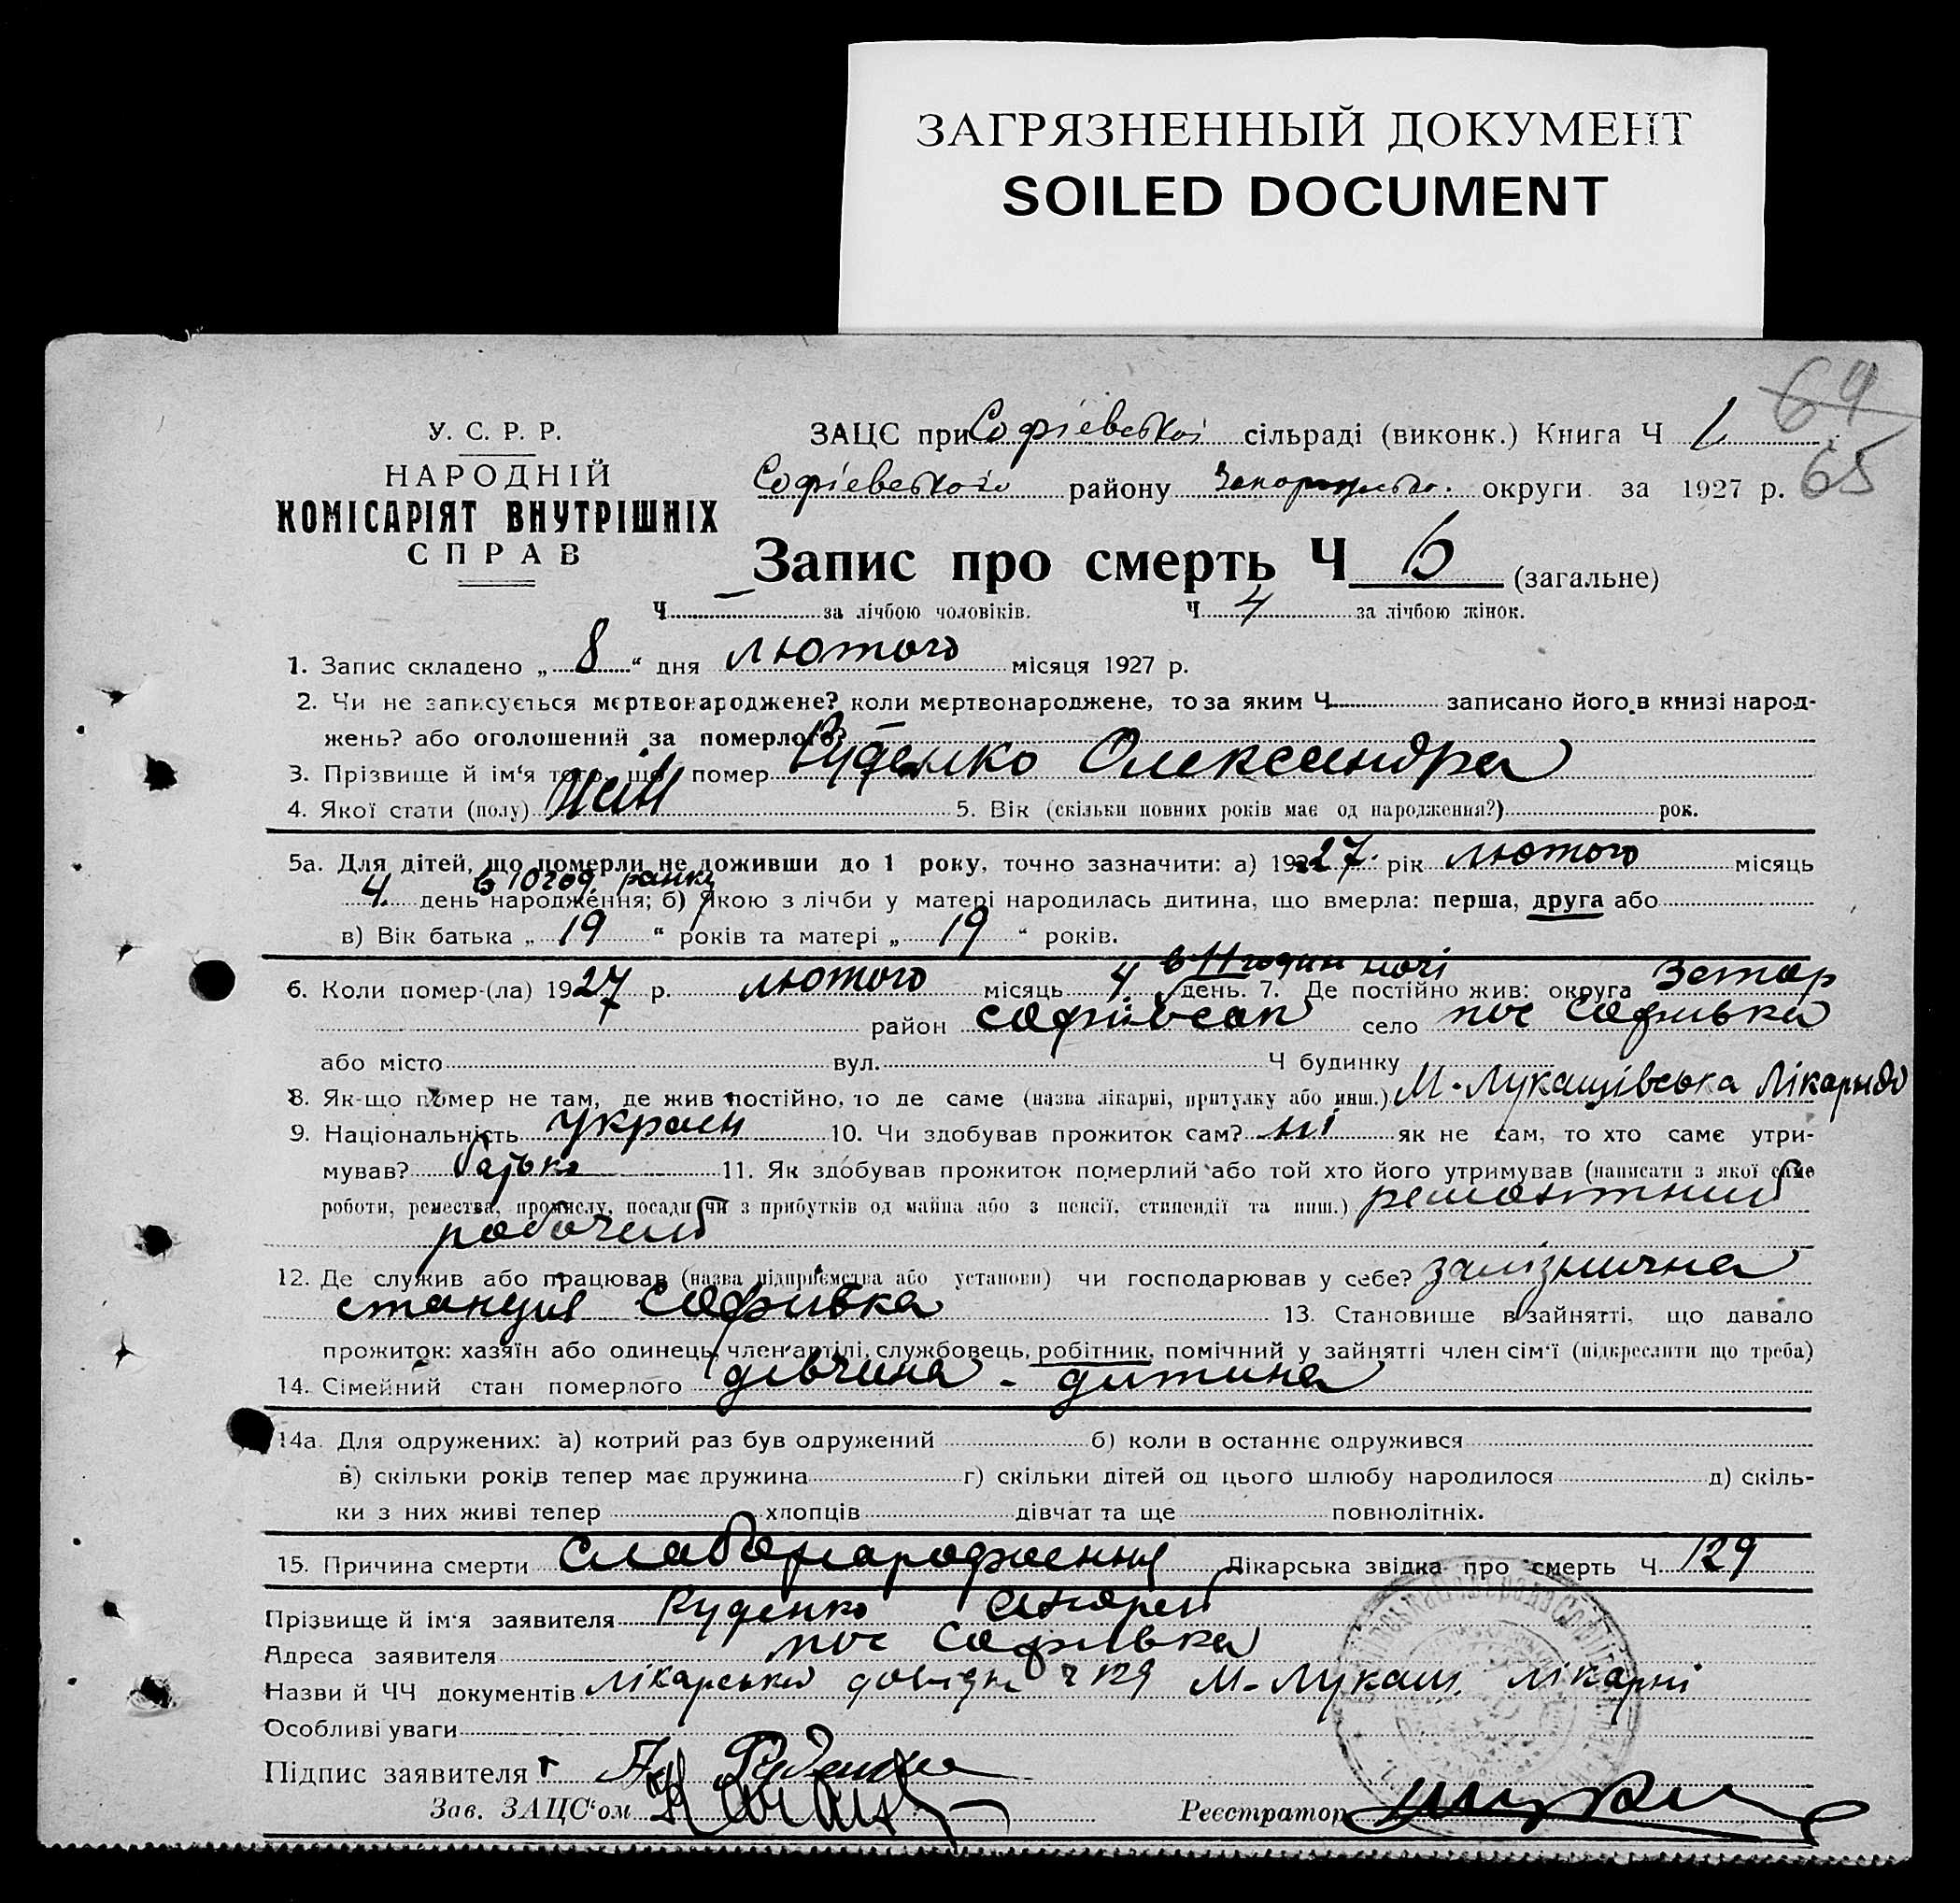 ЗАГРЯЗНЕННЫЙ ДОКУМЕНТ
SOILED DOCUMENT
64
65
У. С. Р. Р.
НАРОДНІЙ
КОМІСАРІЯТ ВНУТРІШНІХ
СПРАВ
ЗАЦС при Софіевської сільраді (виконк.) Книга Ч 1
Софіевського району Запорізько. округи за 1927 р.
Запис про смерть Ч 6 (загальне)
Ч — за лічбою чоловіків. Ч 4 за лічбою жінок.
1. Запис складено „ 8 “ дня лютого місяця 1927 р.
2. Чи не записується мертвонароджене? коли мертвонароджене, то за яким Ч записано його в книзі народ-
жень? або оголошений за померлого? —
3. Прізвище й ім‘я того, що помер Руденко Олександра
4. Якої стати (полу) жін 5. Вік (скільки повних років має од народження?) рок.
5а. Для дітей, що померли не доживши до 1 року, точно зазначити: а) 19 27 рік лютого місяць
в 10 год. ранку
4 день народження; б) Якою з лічби у матері народилась дитина, що вмерла: перша, друга або
в) Вік батька „ 19 “ років та матері „ 19 “ років.
в 11 годин ночі
6. Коли помер-(ла) 19 27 р. лютого місяць 4 день. 7. Де постійно жив: округа
район село пос Софиівка
або місто вул. Ч будинку
8. Як-що помер не там, де жив постійно, то де саме (назва лікарні, притулку або инш.) М-Лукашівська Лікарня
9. Національність Украін 10. Чи здобував прожиток сам? ні як не сам, то хто саме утри-
мував? батько 11. Як здобував прожиток померлий або той хто його утримував (написати з якої саме
роботи, ремества, промислу, посади чи з прибутків од майна або з пенсії, стипендії та инш.) ремонтний
робочий
12. Де служив або працював (назва підприємства або установи) чи господарював у себе? залізнична
станция Софиівка 13. Становище в зайнятті, що давало
прожиток: хазяїн або одинець, член артілі, службовець, робітник, помічний у зайнятті член сім‘ї (підкреслити що треба)
14. Сімейний стан померлого дівчина - дитина
14а. Для одружених: а) котрий раз був одружений б) коли в останнє одружився
в) скільки років тепер має дружина г) скільки дітей од цього шлюбу народилося д) скіль-
ки з них живі тепер хлопців дівчат та ще повнолітніх.
15. Причина смерти слабонародження Лікарська звідка про смерть Ч 129
Прізвище й ім‘я заявителя Руденко Андрей
Адреса заявителя пос Софиівка
Назви й ЧЧ документів лікарська ч 129 М-Лукаш. лікарні
Особливі уваги
Підпис заявителя Руденко
Зав. ЗАЦС‘ом
Реєстратор